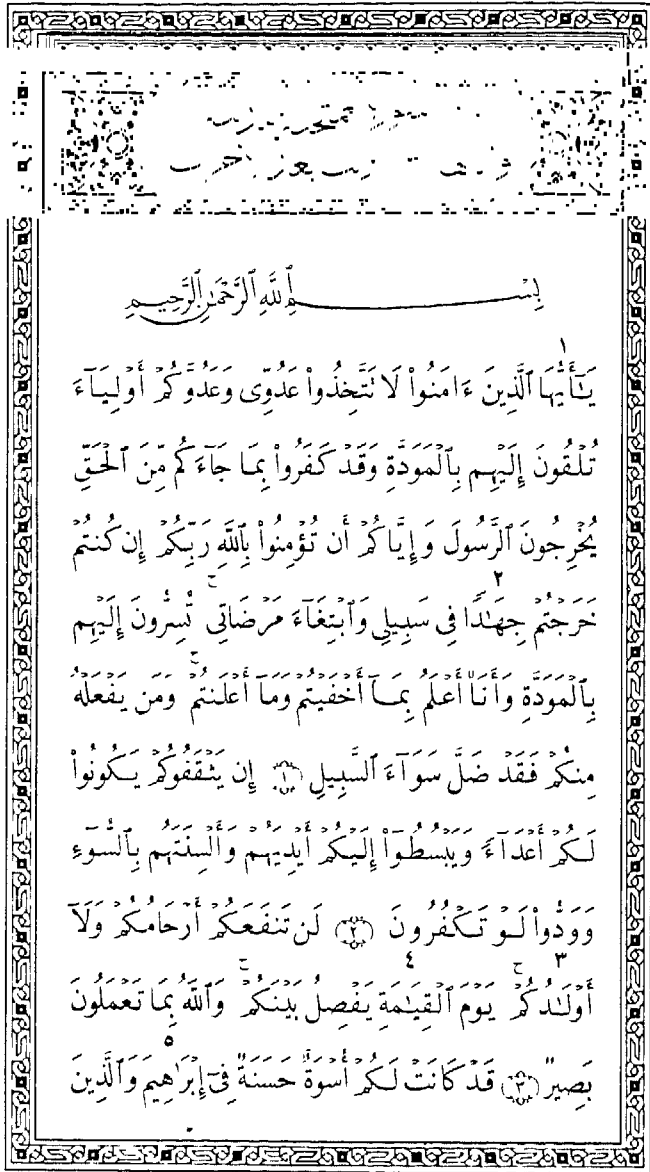 بِسْمِ ٱللَّهِ ٱلرَّحْمَٰنِ ٱلرَّحِيمِ
١
يَٰٓأَيُّهَا ٱلَّذِينَ ءَامَنُوا۟ لَا تَتَّخِذُوا۟ عَدُوِّى وَعَدُوَّكُمْ أَوْلِيَآءَ
تُلْقُونَ إِلَيْهِم بِٱلْمَوَدَّةِ وَقَدْ كَفَرُوا۟ بِمَا جَآءَكُم مِّنَ ٱلْحَقِّ
يُخْرِجُونَ ٱلرَّسُولَ وَإِيَّاكُمْ أَن تُؤْمِنُوا۟ بِٱللَّهِ رَبِّكُمْ إِن كُنتُمْ
٢
خَرَجْتُمْ جِهَٰدًا فِى سَبِيلِى وَٱبْتِغَآءَ مَرْضَاتِىۚ تُسِرُّونَ إِلَيْهِم
بِٱلْمَوَدَّةِ وَأَنَا۠ أَعْلَمُ بِمَآ أَخْفَيْتُمْ وَمَآ أَعْلَنتُمْۚ وَمَن يَفْعَلْهُ
مِنكُمْ فَقَدْ ضَلَّ سَوَآءَ ٱلسَّبِيلِ ١ إِن يَثْقَفُوكُمْ يَكُونُوا۟
لَكُمْ أَعْدَآءً وَيَبْسُطُوٓا۟ إِلَيْكُمْ أَيْدِيَهُمْ وَأَلْسِنَتَهُم بِٱلسُّوٓءِ
وَوَدُّوا۟ لَوْ تَكْفُرُونَ ٢ لَن تَنفَعَكُمْ أَرْحَامُكُمْ وَلَآ
٣ ٤
أَوْلَٰدُكُمْۚ يَوْمَ ٱلْقِيَٰمَةِ يَفْصِلُ بَيْنَكُمْۚ وَٱللَّهُ بِمَا تَعْمَلُونَ
٥
بَصِيرٌ ٣ قَدْ كَانَتْ لَكُمْ أُسْوَةٌ حَسَنَةٌ فِىٓ إِبْرَٰهِيمَ وَٱلَّذِينَ